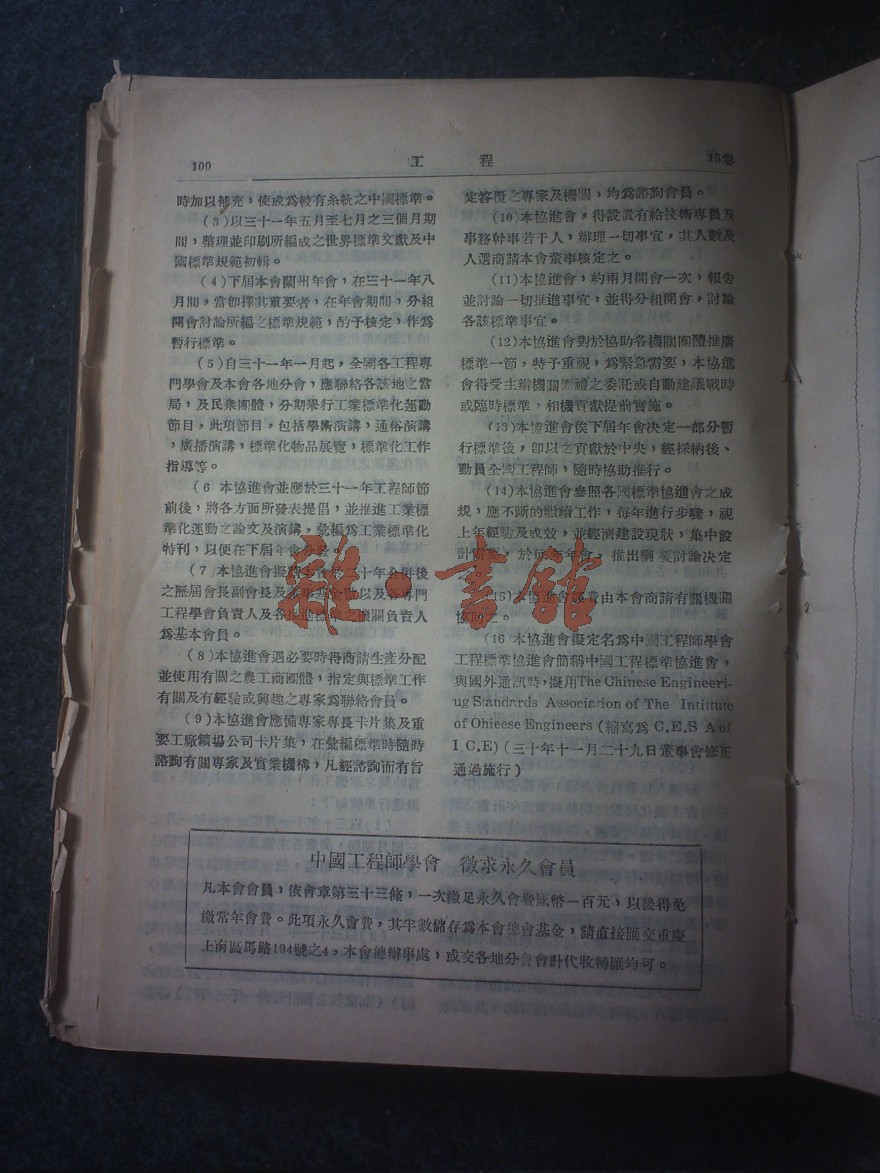 100
工 程
15卷
時加以補充，使成爲較有系統之中國標準。
(3)以三十一年五月至七月之三個月期
間，整理並印刷所編成之世界標準文獻及中
國標準規範初輯。
(4)下屆本會蘭州年會，在三十一年八
月間，當即擇其重要者，在年會期間，分組
開會討論所編之標準規範，酌予核定，作爲
暫行標準。
(5)自三十一年一月起，全國各工程專
門學會及本會各地分會，應聯絡各該地之當
局，及民衆團體，分期舉行工業標準化運動
節目，此項節目，包括學術演講，通俗演講
，廣播演講，標準化物品展覽，標準化工作
指導等。
(6 本協進會並應於三十一年工程師節
前後，將各方面所發表提倡，並推進工業標
準化運動之論文及演講，彙編爲工業標準化
特刊，以便在下屆年會分發。
(7)本協進會擬聘 十年合併後
之歷屆會長副會長及 以及各專門
工程學會負責人及各推進標準之機關負責人
爲基本會員。
(8)本協進會遇必要時得商請生產分配
並使用有關之農工商團體，指定與標準工作
有關及有經驗或興趣之專家爲聯絡會員。
(9)本協進會應備專家專長卡片集及重
要工廠鑛場公司卡片集，在彙編標準時隨時
諮詢有關專家及實業機構，凡經諮詢而有旨
定答覆之專家及機關，均爲諮詢會員。
(10)本協進會，得設置有給技術專員及
事務幹事若干人，辦理一切事宜，其人數及
人選商請本會董事核定之。
(11)本協進會，約兩月開會一次，報告
並討論一切推進事宜，並得分組開會，討論
各該標準事宜。
(12)本協進會對於協助各機關團體推廣
標準一節，特予重視，爲緊急需要，本協進
會得受主辦機關團體之委託或自動建議戰時
或臨時標準，相機貢獻提前實施。
(13)本協進會俟下屆年會決定一部分暫
行標準後，即以之貢獻於中央，經採納後、
動員全國工程師，隨時協助推行。
(14)本協進會參照各國標準協進會之成
規，應不斷的繼續工作，每年進行步驟，視
上年經驗及成效，並經濟建設現狀，集中設
計需要，於每年年會，推出綱要討論決定
(15)本協進會經費由本會商請有關機關
協助之。
(16 本協進會擬定名爲中國工程師學會
工程標準協進會簡稱中國工程標準協進會，
與國外通訊時，擬用The Chinese Engineeri-
ug Standards Association of The Intitute
of Ohieese Engineers (縮寫爲 C.E.S A of
I.C.E) (三十年十一月二十九日董事會修正
通過施行)
中國工程師學會 徵求永久會員
凡本會會員，依會章第三十三條，一次繳足永久會費國幣一百元，以後得免
繳常年會費。此項永久會費，其半數儲存爲本會總會基金，請直接匯交重慶
上南區馬路194號之4，本會總辦事處，或交各地分會會計代收轉匯均可。
雜·書館